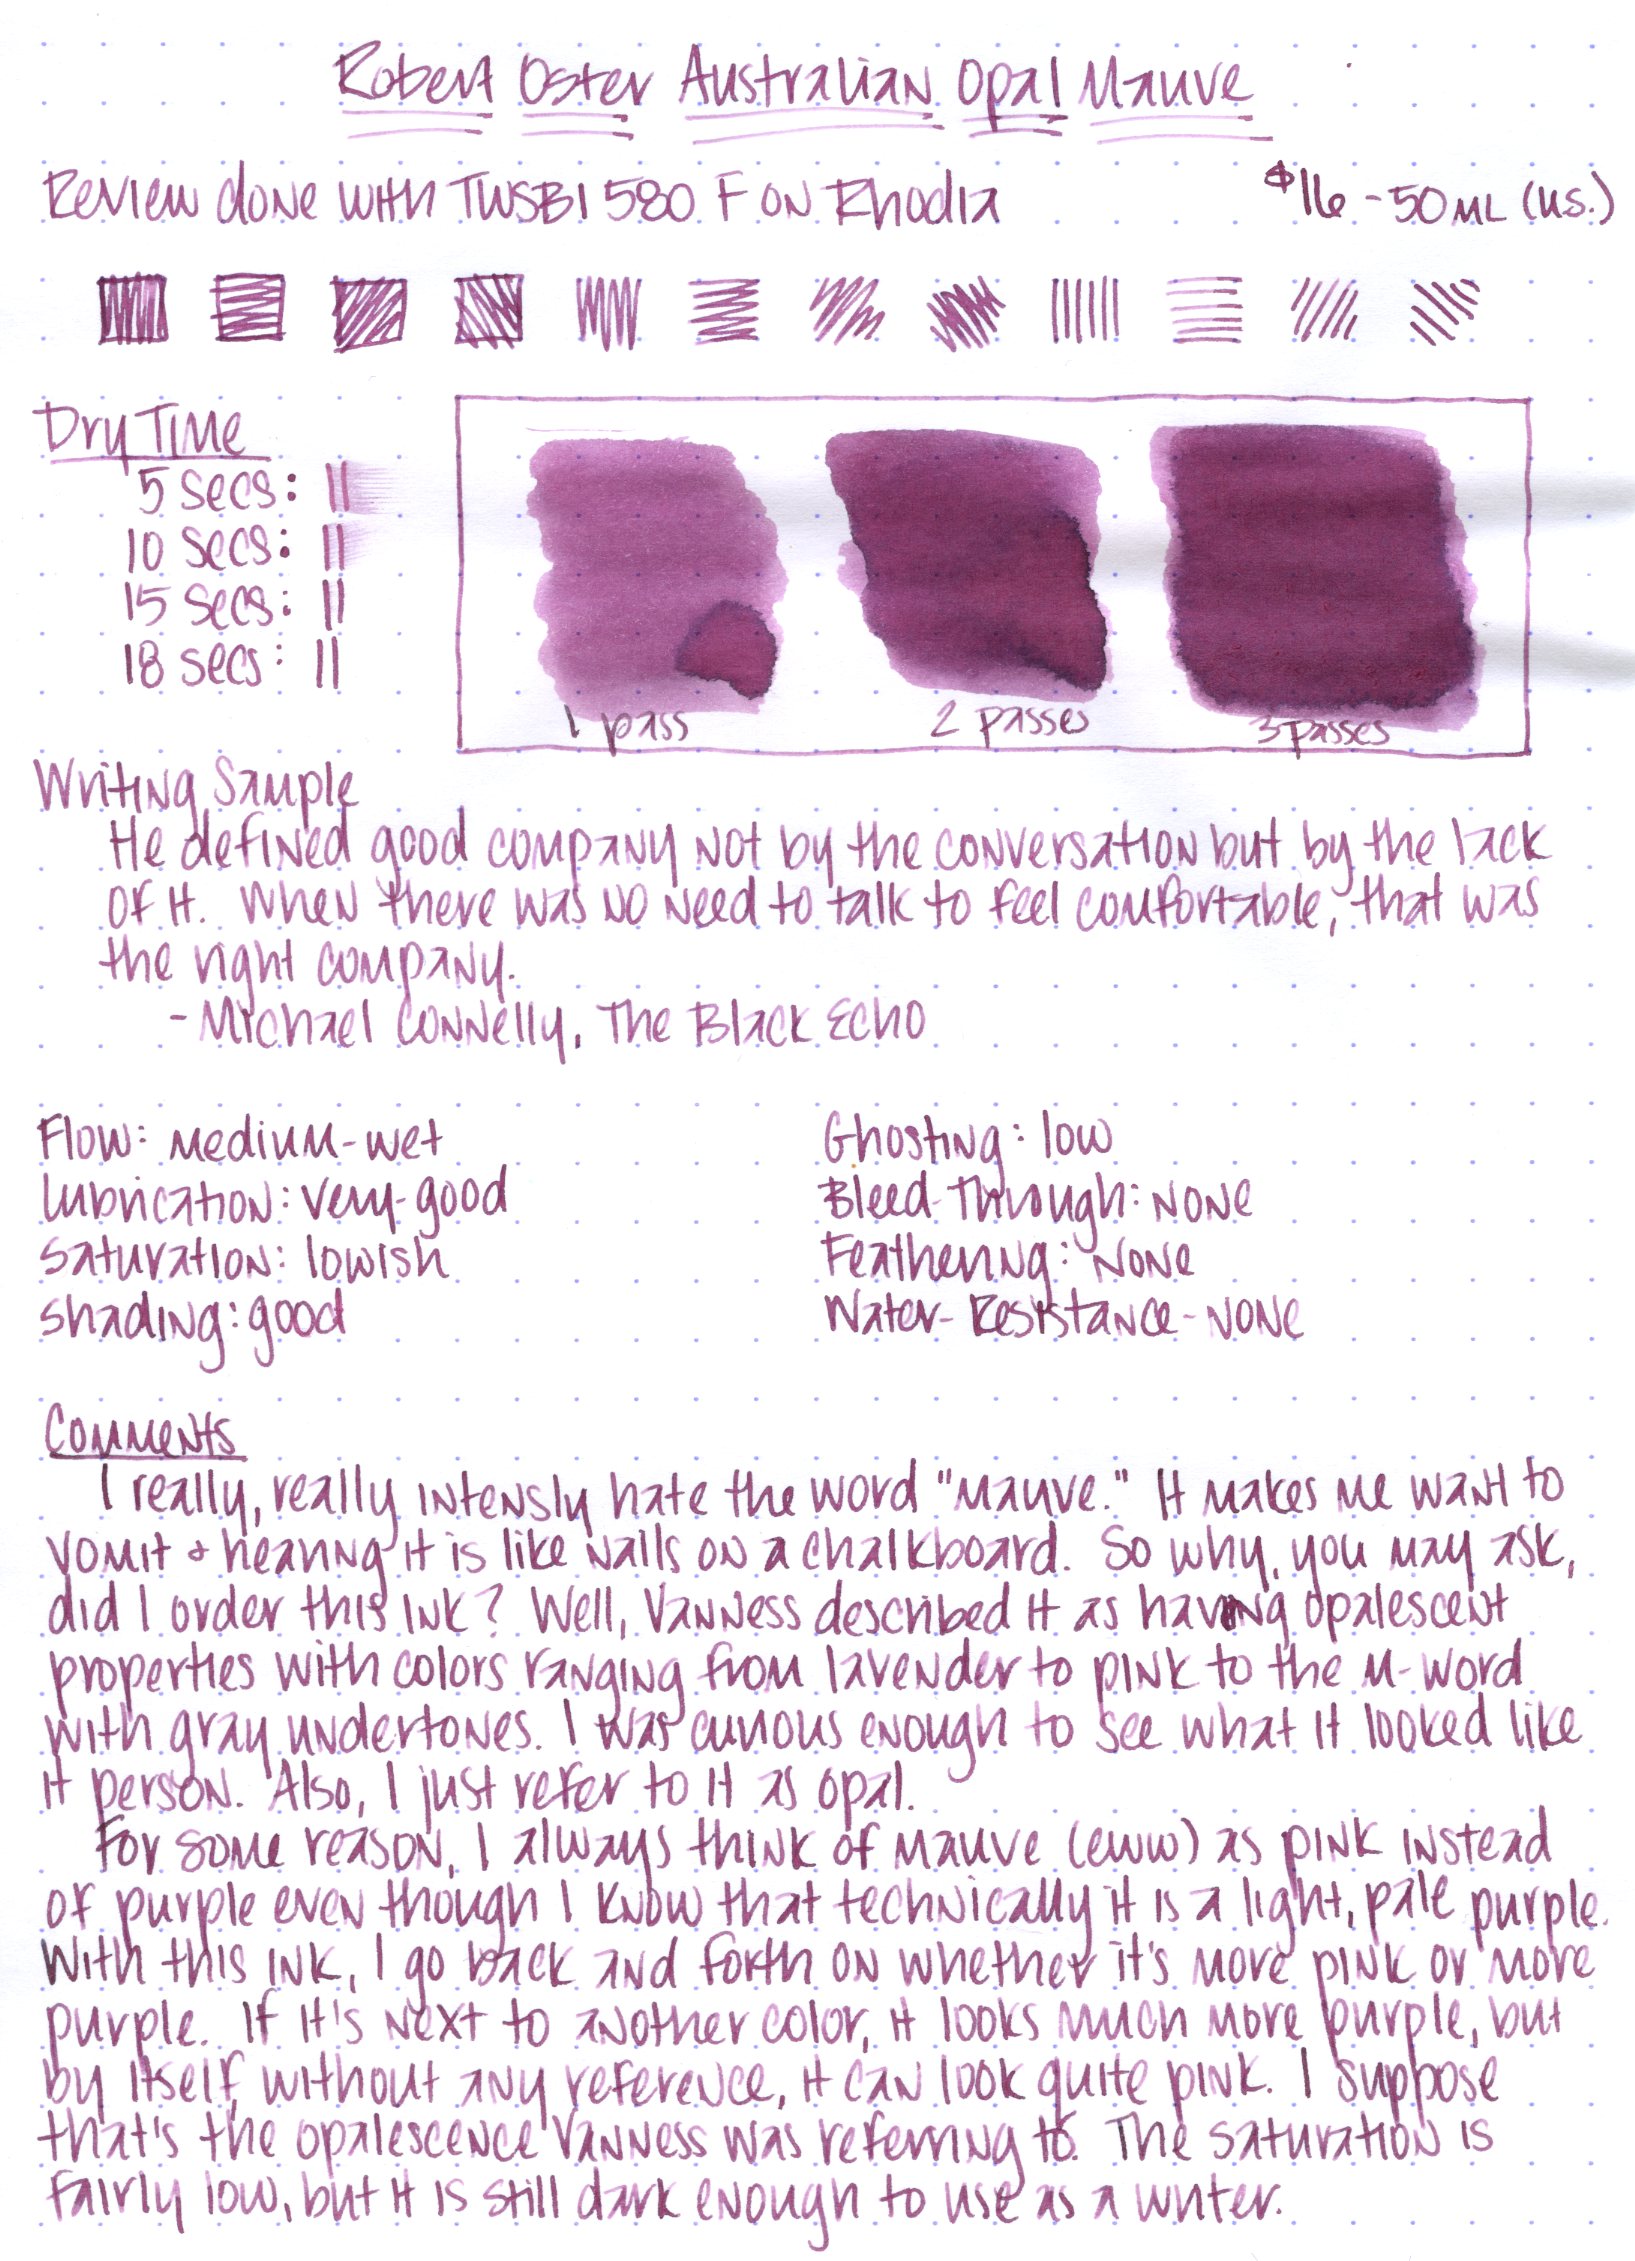 Robert Oster Australian Opal Mauve
Review done with TWSBI 580 F on Rhodia $16 - 50 mL (U.S.)
Dry Time
5 secs:
10 secs:
15 secs:
18 secs:
1 pass 2 passes 3 passes
Writing Sample
He defined good company not by the conversation but by the lack
of it. When there was no need to talk to feel comfortable, that was
the right company.
- Michael Connelly, The Black Echo
Flow: medium-wet
Lubrication: very-good
Saturation: lowish
Shading: good
Ghosting: low
Bleed-Through: none
Feathering: none
Water-Resistance - none
Comments
I really, really intensly hate the word "mauve." It makes me want to
vomit & hearing it is like nails on a chalkboard. So why, you may ask,
did I order this ink? Well, Vanness described it as having opalescent
properties with colors ranging from lavender to pink to the m-word
with gray undertones. I was curious enough to see what it looked like
it person. Also, I just refer to it as opal.
For some reason, I always think of mauve (eww) as pink instead
of purple even though I know that technically it is a light, pale purple.
With this ink, I go back and forth on whether it's more pink or more
purple. If it's next to another color, it looks much more purple, but
by itself, without any reference, it can look quite pink. I suppose
that's the opalescence Vanness was referring to. The saturation is
fairly low, but it is still dark enough to use as a writer.